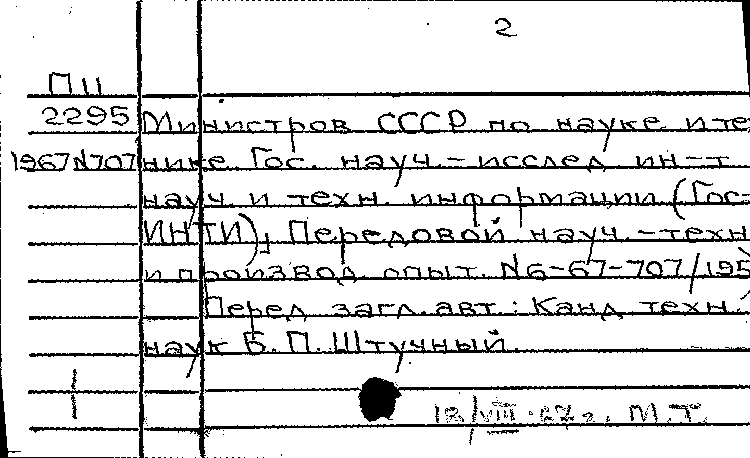 2
П11
2295 Министров СССР по науке и те
1967N707 нике. Гос. науч.-исслед. ин-т
науч. и техн. информации (Гос-
ИНТИ), Передовой науч.-техн
и производ. опыт. N6-67-707/195
Перед загл. авт.: Канд техн.
наук Б. П. Штучный.
18/VIII-67г. М.Т.